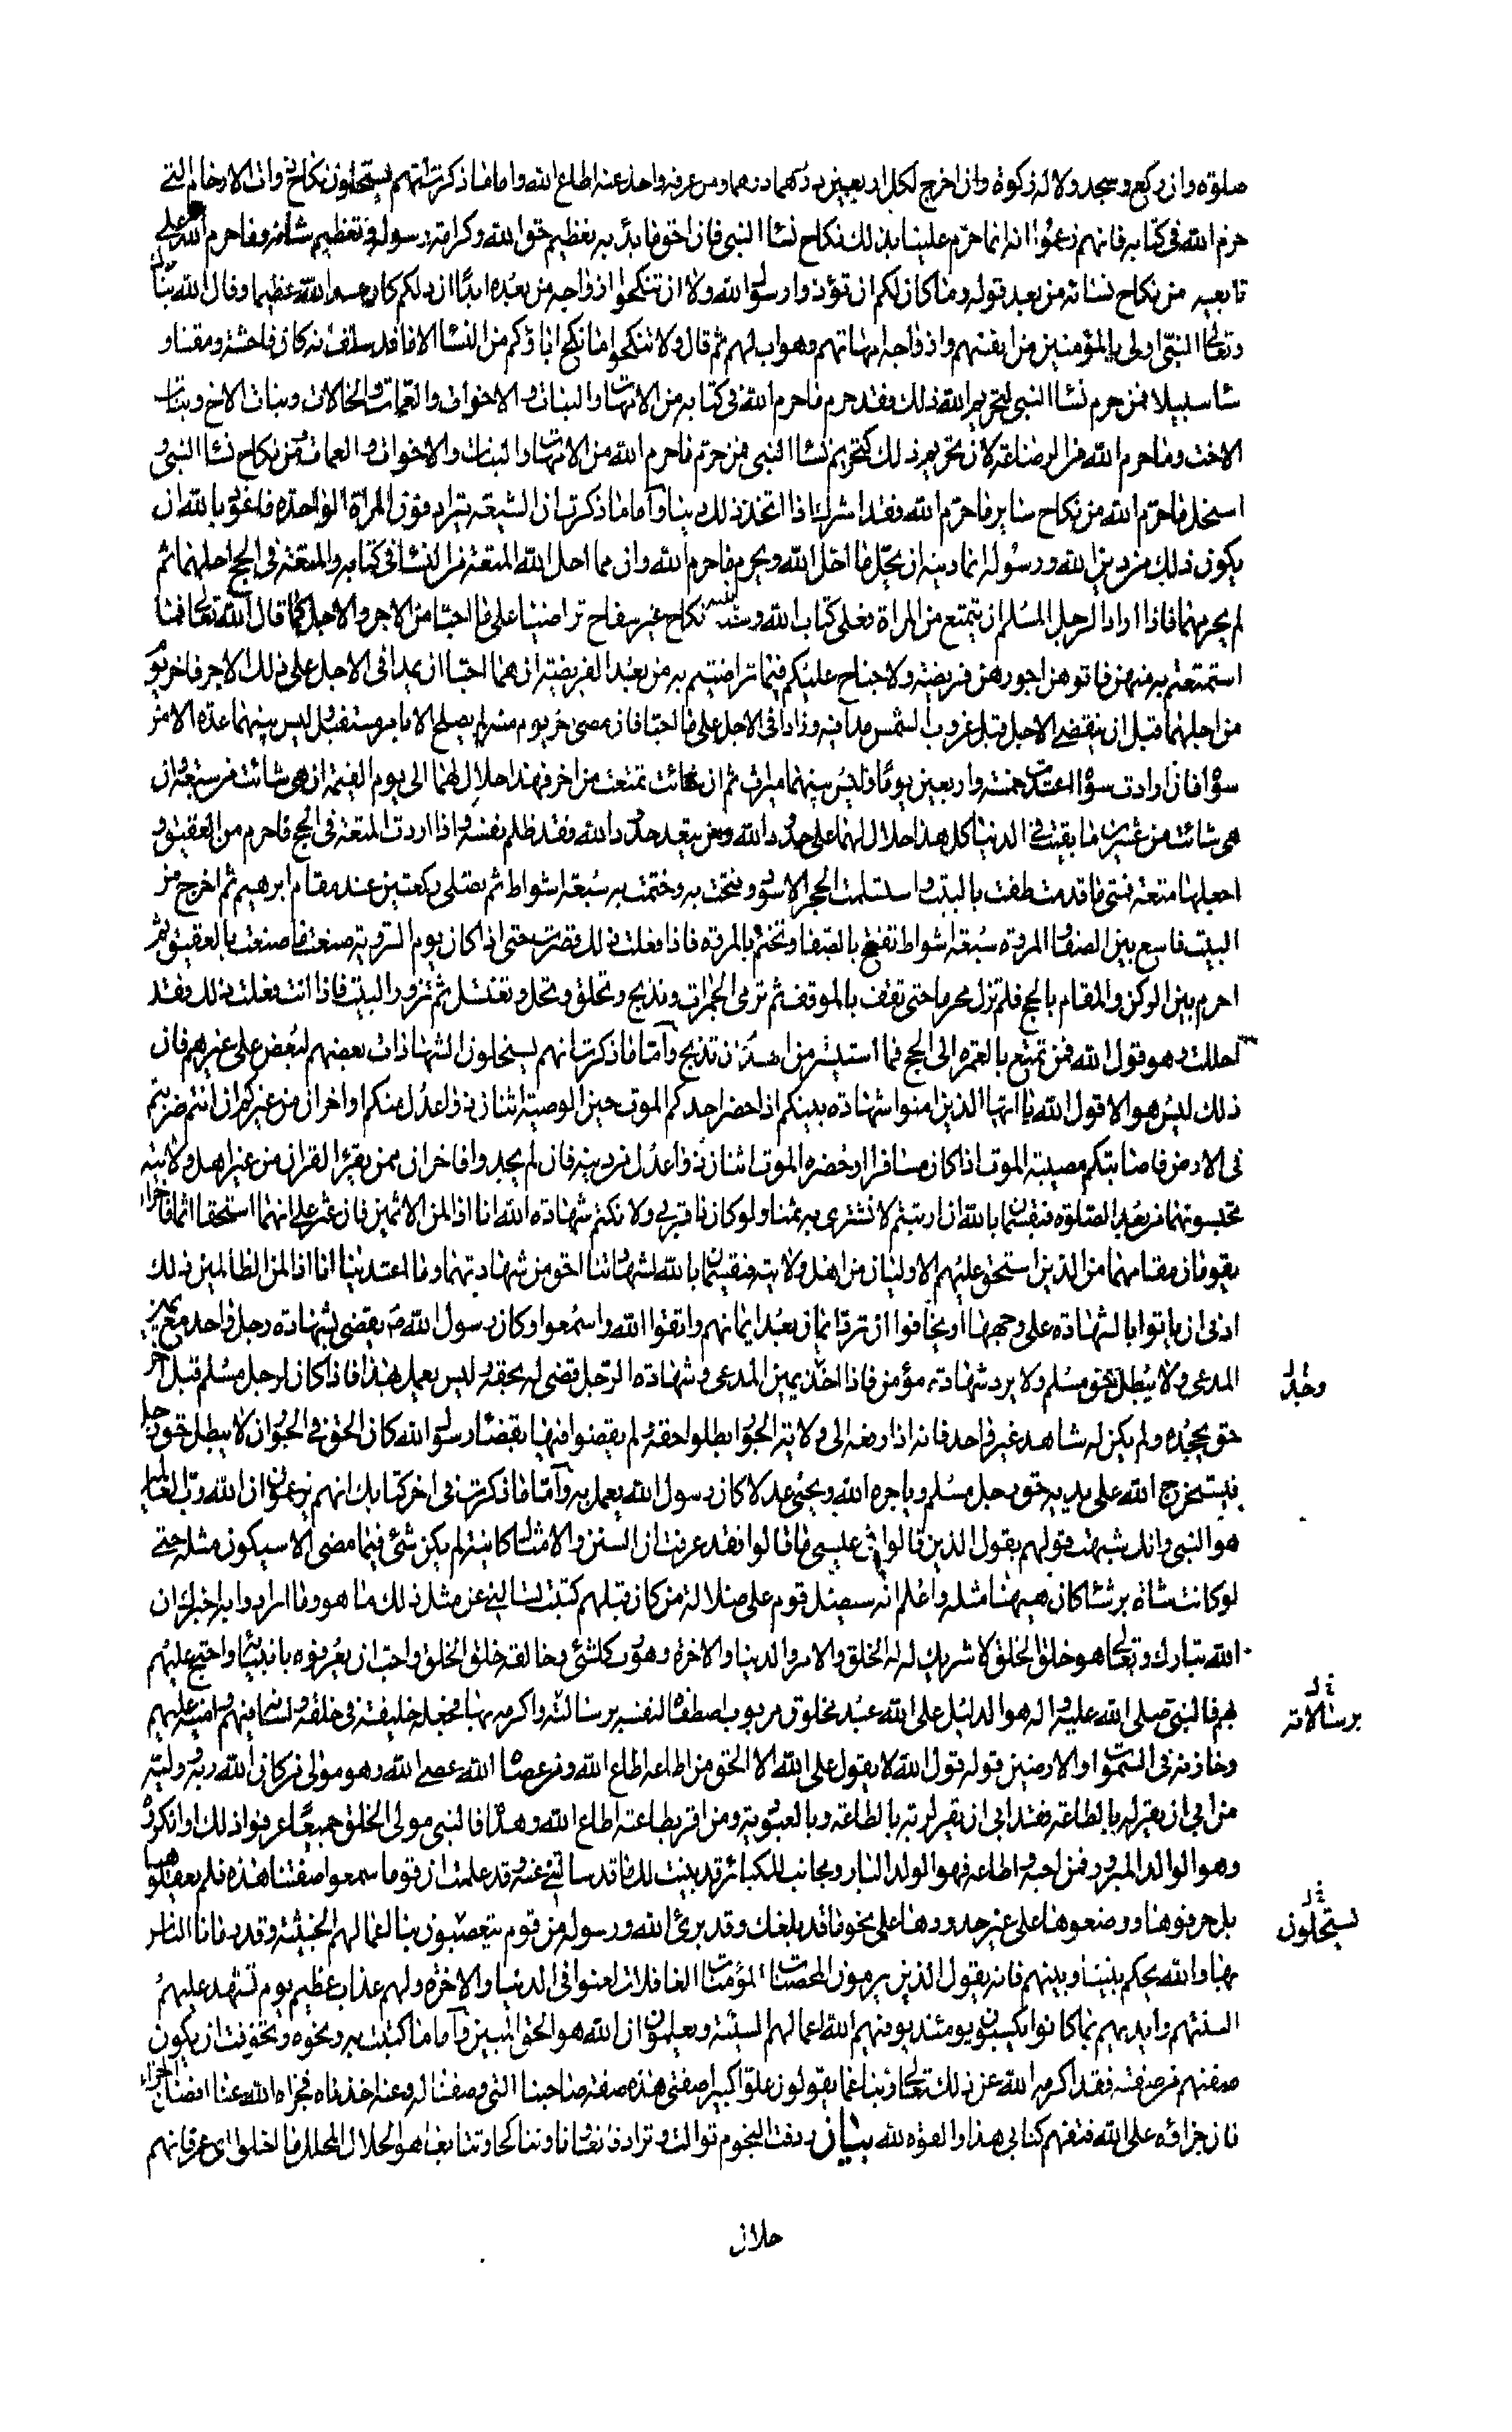 صلوته وان ركع وسجد ولا له زكوة وان اخرج لكل اربعين درهما درهما ومن عرفه واخذ عنه اطاع الله واما ما ذكرت انهم يستحلون نكاح ذوات الارحام التي
حرم الله في كتابه فانهم زعموا انه انما حرم علينا بذلك نكاح نساء النبي فان احق ما بدئ به تعظيم حق الله وكرامة رسوله وتعظيم شانه وما حرم الله على
تابعيه من نكاح نسائه من بعد قوله وما كان لكم ان تؤذوا رسول الله ولا ان تنكحوا ازواجه من بعده ابدا ان ذلكم كان عند الله عظيما وقال الله تبارك
وتعالى النبي اولى بالمؤمنين من انفسهم وازواجه امهاتهم وهو اب لهم ثم قال ولا تنكحوا ما نكح اباؤكم من النساء الا ما قد سلف انه كان فاحشة ومقتا و
ساء سبيلا فمن حرم نساء النبي لتحريم الله ذلك فقد حرم ما حرم الله في كتابه من الامهات والبنات والاخوات والعمات والخالات وبنات الاخ وبنات
الاخت وما حرم الله من الرضاعة لان تحريم ذلك كتحريم نساء النبي فمن حرم ما حرم الله من الامهات والبنات والاخوات والعمات من نكاح نساء النبي و
استحل ما حرم الله من نكاح سائر ما حرم الله فقد اشرك اذا اتخذ ذلك دينا واما ما ذكرت ان الشيعة يترادفون المراة الواحدة فاعوذ بالله ان
يكون ذلك من دين الله ورسوله انما دينه ان يحل ما احل الله ويحرم ما حرم الله وان مما احل الله المتعة من النساء في كتابه والمتعة في الحج احلهما ثم
لم يحرمهما فاذا اراد الرجل المسلم ان يتمتع من المراة فعلى كتاب الله وسنته نكاح غير سفاح تراضيا على ما احبا من الاجر والاجل كما قال الله تعالى فما
استمتعتم به منهن فاتوهن اجورهن فريضة ولا جناح عليكم فيما تراضيتم به من بعد الفريضة ان هما احبا ان يمدا في الاجل على ذلك الاجر فاخر يوم
من اجلهما قبل ان ينقضي الاجل قبل غروب الشمس مدا فيه وزادا في الاجل على ما احبا فان مضى اخر يوم منه لم يصلح الا بامر مستقبل وليس بينهما عدة الا من
سواه فان ارادت سواه اعتدت خمسة واربعين يوما وليس بينهما ميراث ثم ان شائت تمتعت من اخر فهذا حلال لهما الى يوم القيمة ان هي شائت من سبعة وان
هي شائت من عشرين ما بقيت في الدنيا كل هذا حلال لهما على حدود الله ومن يتعد حدود الله فقد ظلم نفسه واذا اردت المتعة في الحج فاحرم من العقيق و
اجعلها متعة فمتى ما قدمت طفت بالبيت واستلمت الحجر الاسود وفتحت به وختمت به سبعة اشواط ثم تصلي ركعتين عند مقام ابرهيم ثم اخرج من
البيت فاسع بين الصفا والمروة سبعة اشواط تفتح بالصفا وتختم بالمروة فاذا فعلت ذلك قصرت حتى اذا كان يوم التروية صنعت ما صنعت بالعقيق ثم
احرم بين الركن والمقام بالحج فلم تزل محرما حتى تقف بالموقف ثم ترمي الجمرات وتذبح وتحلق وتحل وتغتسل ثم تزور البيت فاذا انت فعلت ذلك فقد
احللت وهو قول الله فمن تمتع بالعمرة الى الحج فما استيسر من الهدي ان تذبح واما ما ذكرت انهم يستحلون الشهادات بعضهم لبعض على غيرهم فان
ذلك ليس هو الا قول الله يا ايها الذين امنوا شهادة بينكم اذا حضر احدكم الموت حين الوصية اثنان ذوا عدل منكم او اخران من غيركم ان انتم ضربتم
في الارض فاصابتكم مصيبة الموت اذا كان مسافرا وحضره الموت اثنان ذوا عدل من دينه فان لم يجدوا فاخران ممن يقرء القران من غير اهل ولايته
تحبسونهما من بعد الصلوة فيقسمان بالله ان ارتبتم لا نشتري به ثمنا ولو كان ذا قربى ولا نكتم شهادة الله انا اذا لمن الاثمين فان عثر على انهما استحقا اثما فاخران
يقومان مقامهما من الذين استحق عليهم الاوليان من اهل ولايته فيقسمان بالله لشهادتنا احق من شهادتهما وما اعتدينا انا اذا لمن الظالمين ذلك
ادنى ان ياتوا بالشهادة على وجهها او يخافوا ان ترد ايمان بعد ايمانهم واتقوا الله واسمعوا وكان رسول الله ص يقضي بشهادة رجل واحد مع يمين
المدعي ولا يبطل حق مسلم ولا يرد شهادة مؤمن فاذا اخذ يمين المدعي وشهادة الرجل قضى له بحقه وليس يعمل بهذا فاذا كان لرجل مسلم قبل اخر
وخلد
حق يجحده ولم يكن له شاهد غير واحد فانه اذا رفعه الى ولاة الجور ابطلوا حقه ولم يقضوا فيها بقضاء رسول الله كان الحق في الجور ان لا يبطل حق رجل
فيستخرج الله على يديه حق رجل مسلم وياجره الله ويجيء عدلا كان رسول الله يعمل به واما ما ذكرت في اخر كتابك انهم يزعمون ان الله رب العالمين
هو النبي وانك شبهت قولهم بقول الذين قالوا في عيسى ما قالوا فقد عرفت ان السنن والامثال كائنة لم يكن شئ فيما مضى الا سيكون مثله حتى
لو كانت شاة برشاء كان هيهنا مثله واعلم انه سيضل قوم على ضلالة من كان قبلهم كتبت تسالني عن مثل ذلك ما هو وما ارادوا به اخبرك ان
الله تبارك وتعالى هو خلق الخلق لا شريك له له الخلق والامر والدنيا والاخرة وهو رب كلشئ وخالقه خلق الخلق واحب ان يعرفوه بانبيائه واحتج عليهم
بهم فالنبي صلى الله عليه واله هو الدليل على الله عبد مخلوق مربوب اصطفاه لنفسه برسالته واكرمه بها فجعله خليفته في خلقه ولسانه فيهم وامينه عليهم
برسالاته
وخازنه في السموات والارضين قوله قول الله لا يقول على الله الا الحق من اطاعه اطاع الله ومن عصاه عصى الله وهو مولى من كان الله ربه ووليه
من ابى ان يقر له بالطاعة فقد ابى ان يقر لربه بالطاعة وبالعبودية ومن اقر بطاعته اطاع الله وهداه فالنبي مولى الخلق جميعا عرفوا ذلك او انكروه
وهو الوالد المبرور فمن احبه واطاعه فهو الولد البار ومجانب للكبائر قد بينت لك ما قد سالتني عنه وقد علمت ان قوما سمعوا صفتنا هذه فلم يعقلوها
بل حرفوها ووضعوها على غير حدودها على نحو ما قد بلغك وقد برئ الله ورسوله من قوم يتعصبون بنا اعمالهم الخبيثة وقد رمانا الناس
نستحلون
بها والله يحكم بيننا وبينهم فانه يقول الذين يرمون المحصنات المؤمنات الغافلات لعنوا في الدنيا والاخرة ولهم عذاب عظيم يوم تشهد عليهم
السنتهم وايديهم بما كانوا يكسبون يومئذ يوفيهم الله اعمالهم السيئة ويعلمون ان الله هو الحق المبين واما ما كتبت به ونحوه وتخوفت ان يكون
صفتهم من صفته فقد اكرمه الله عن ذلك تعالى ربنا عما يقولون علوا كبيرا صفتي هذه صفة صاحبنا التي وصفنا له وعنه اخذناه فجزاه الله عنا افضل الجزاء
فان جزاؤه على الله فتفهم كتابي هذا والقوة لله بيان ردفت النجوم توالت وترادفا تعاونا وتناكحا وتتابعا هو الحلال المحلل ما احلوا اي عرفانهم
حلال